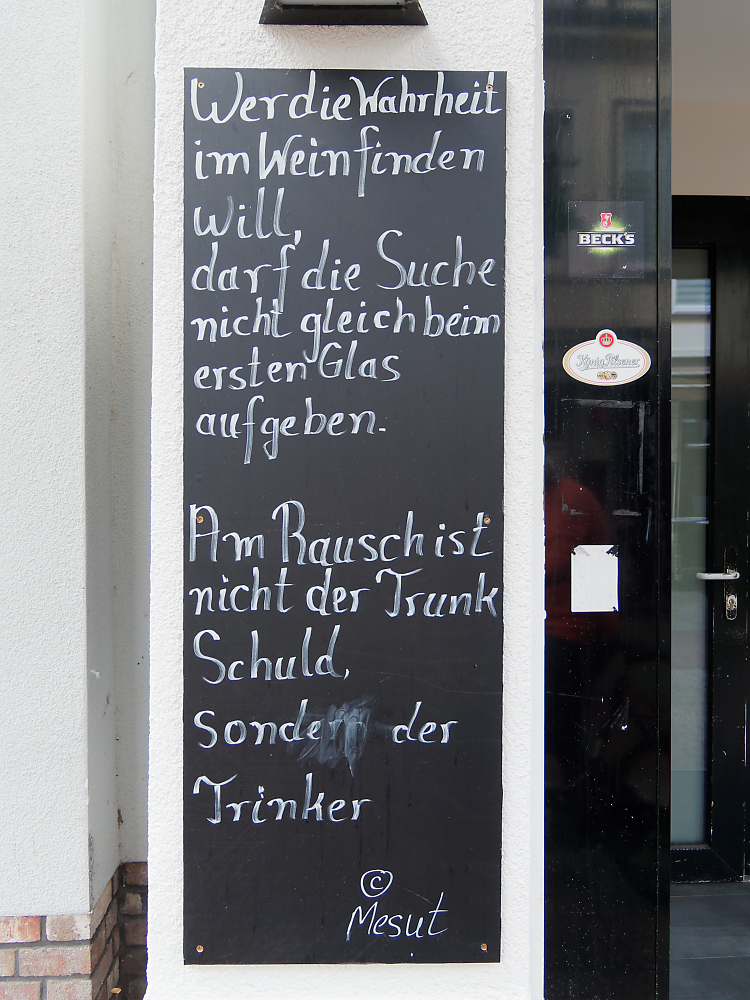 Wer die Wahrheit
im Wein finden
will,
darf die Suche
nicht gleich beim
ersten Glas
aufgeben.
Am Rausch ist
nicht der Trunk
Schuld,
sondern der
Trinker
©
Mesut
BECK'S
König Pilsener